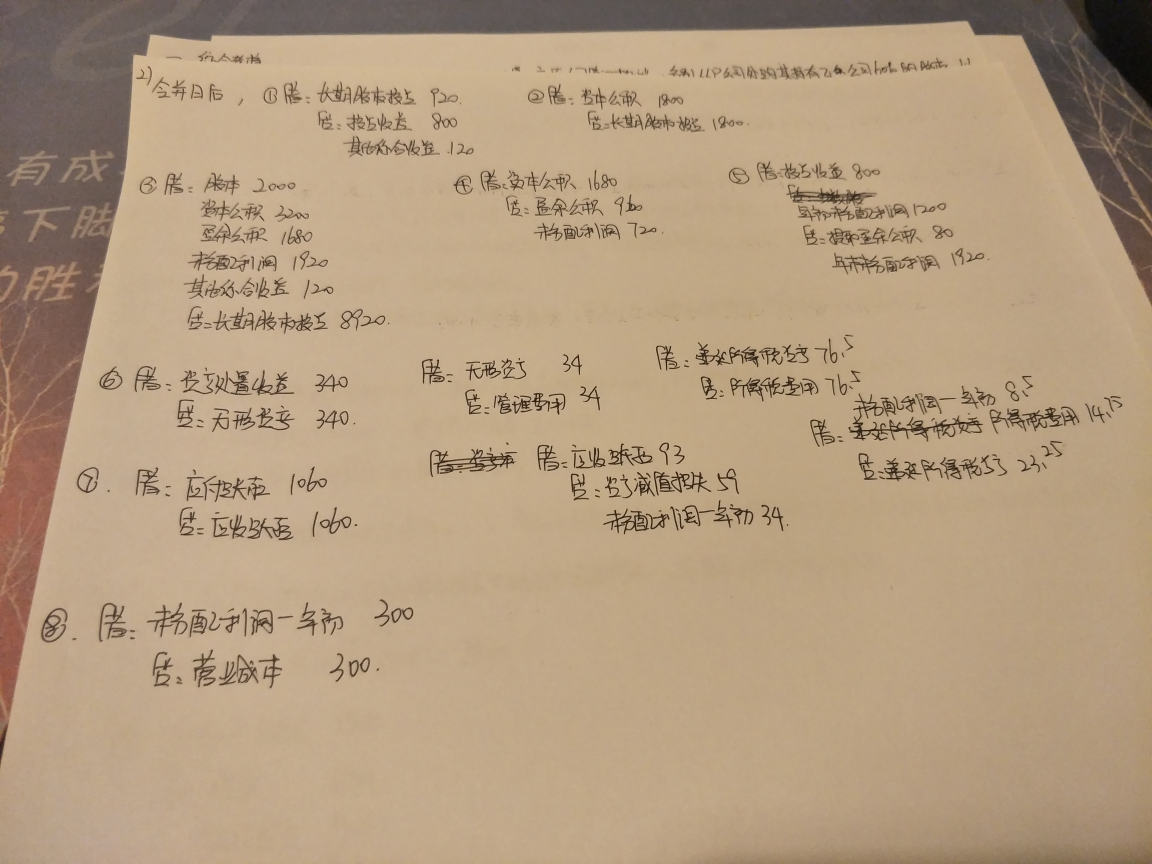 2) 合并日后, ① 借: 长期股权投资 920.
贷: 投资收益 800
其他综合收益 120
② 借: 资本公积 1800
贷: 长期股权投资 1800.
③ 借: 股本 2000
资本公积 3200
盈余公积 1680
未分配利润 1920
其他综合收益 120
贷: 长期股权投资 8920.
④ 借: 资本公积 1680
贷: 盈余公积 960
未分配利润 720.
⑤ 借: 投资收益 800
年初未分配利润 1200
贷: 提取盈余公积 80
年末未分配利润 1920.
⑥ 借: 资产处置收益 340
贷: 无形资产 340.
借: 无形资产 34
贷: 管理费用 34
借: 递延所得税资产 76.5
贷: 所得税费用 76.5
⑦. 借: 应付账款 1060
贷: 应收账款 1060.
借: 应收账款 93
贷: 资产减值损失 59
未分配利润—年初 34.
未分配利润—年初 8.5
借: 所得税费用 14.75
贷: 递延所得税资产 23.25
⑧. 借: 未分配利润—年初 300
贷: 营业成本 300.
有成
下脚
的胜